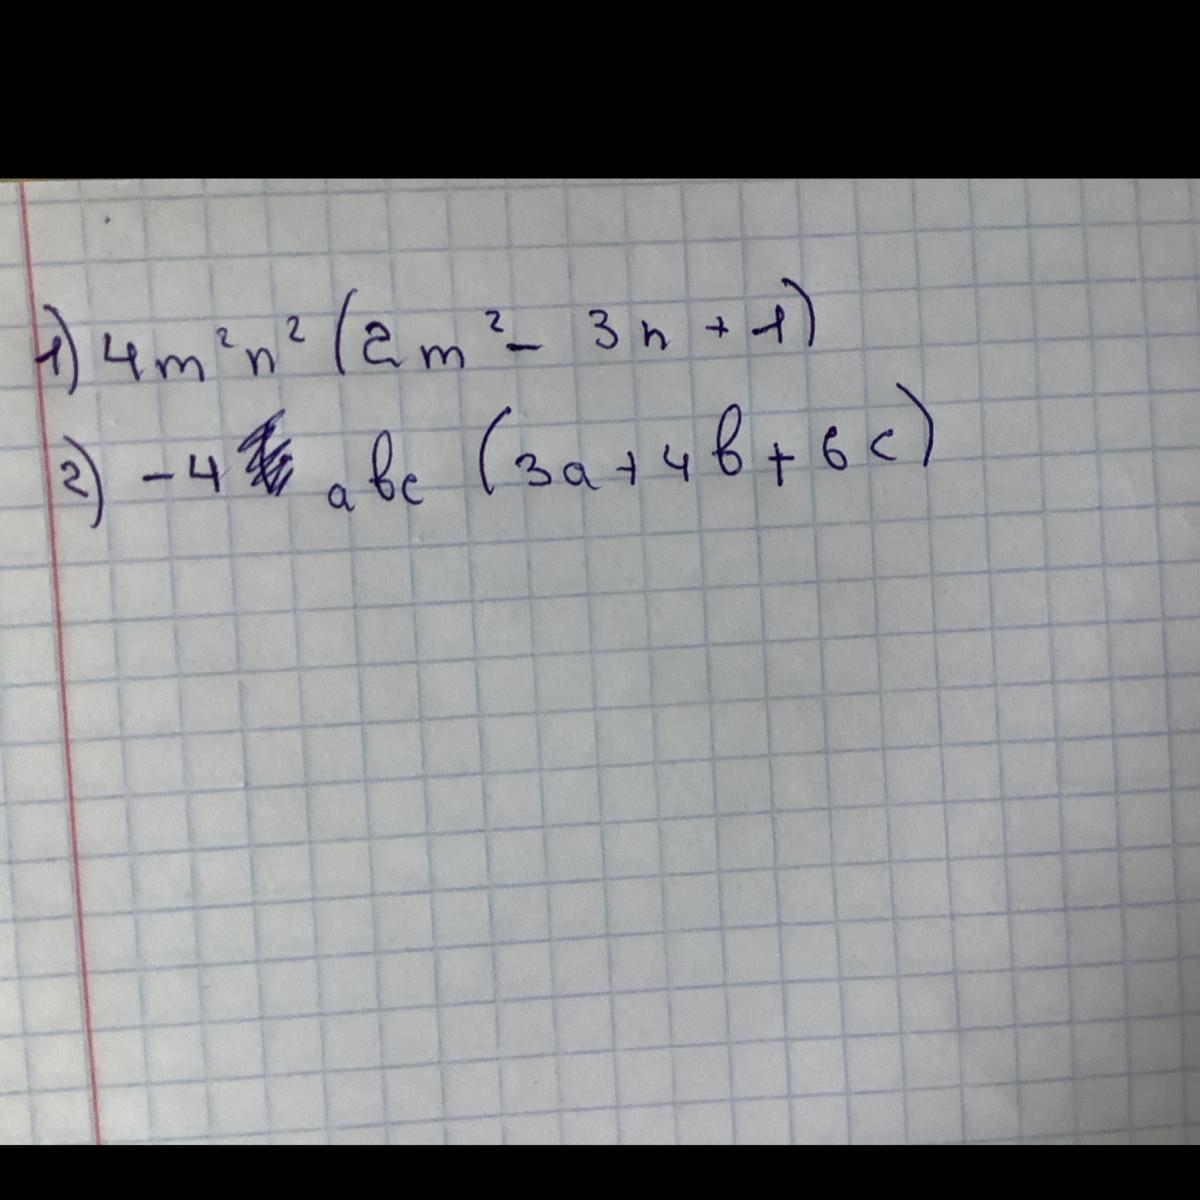 1) 4m²n² (2m² - 3n + 1)
2) -4 abc (3a + 4b + 6c)